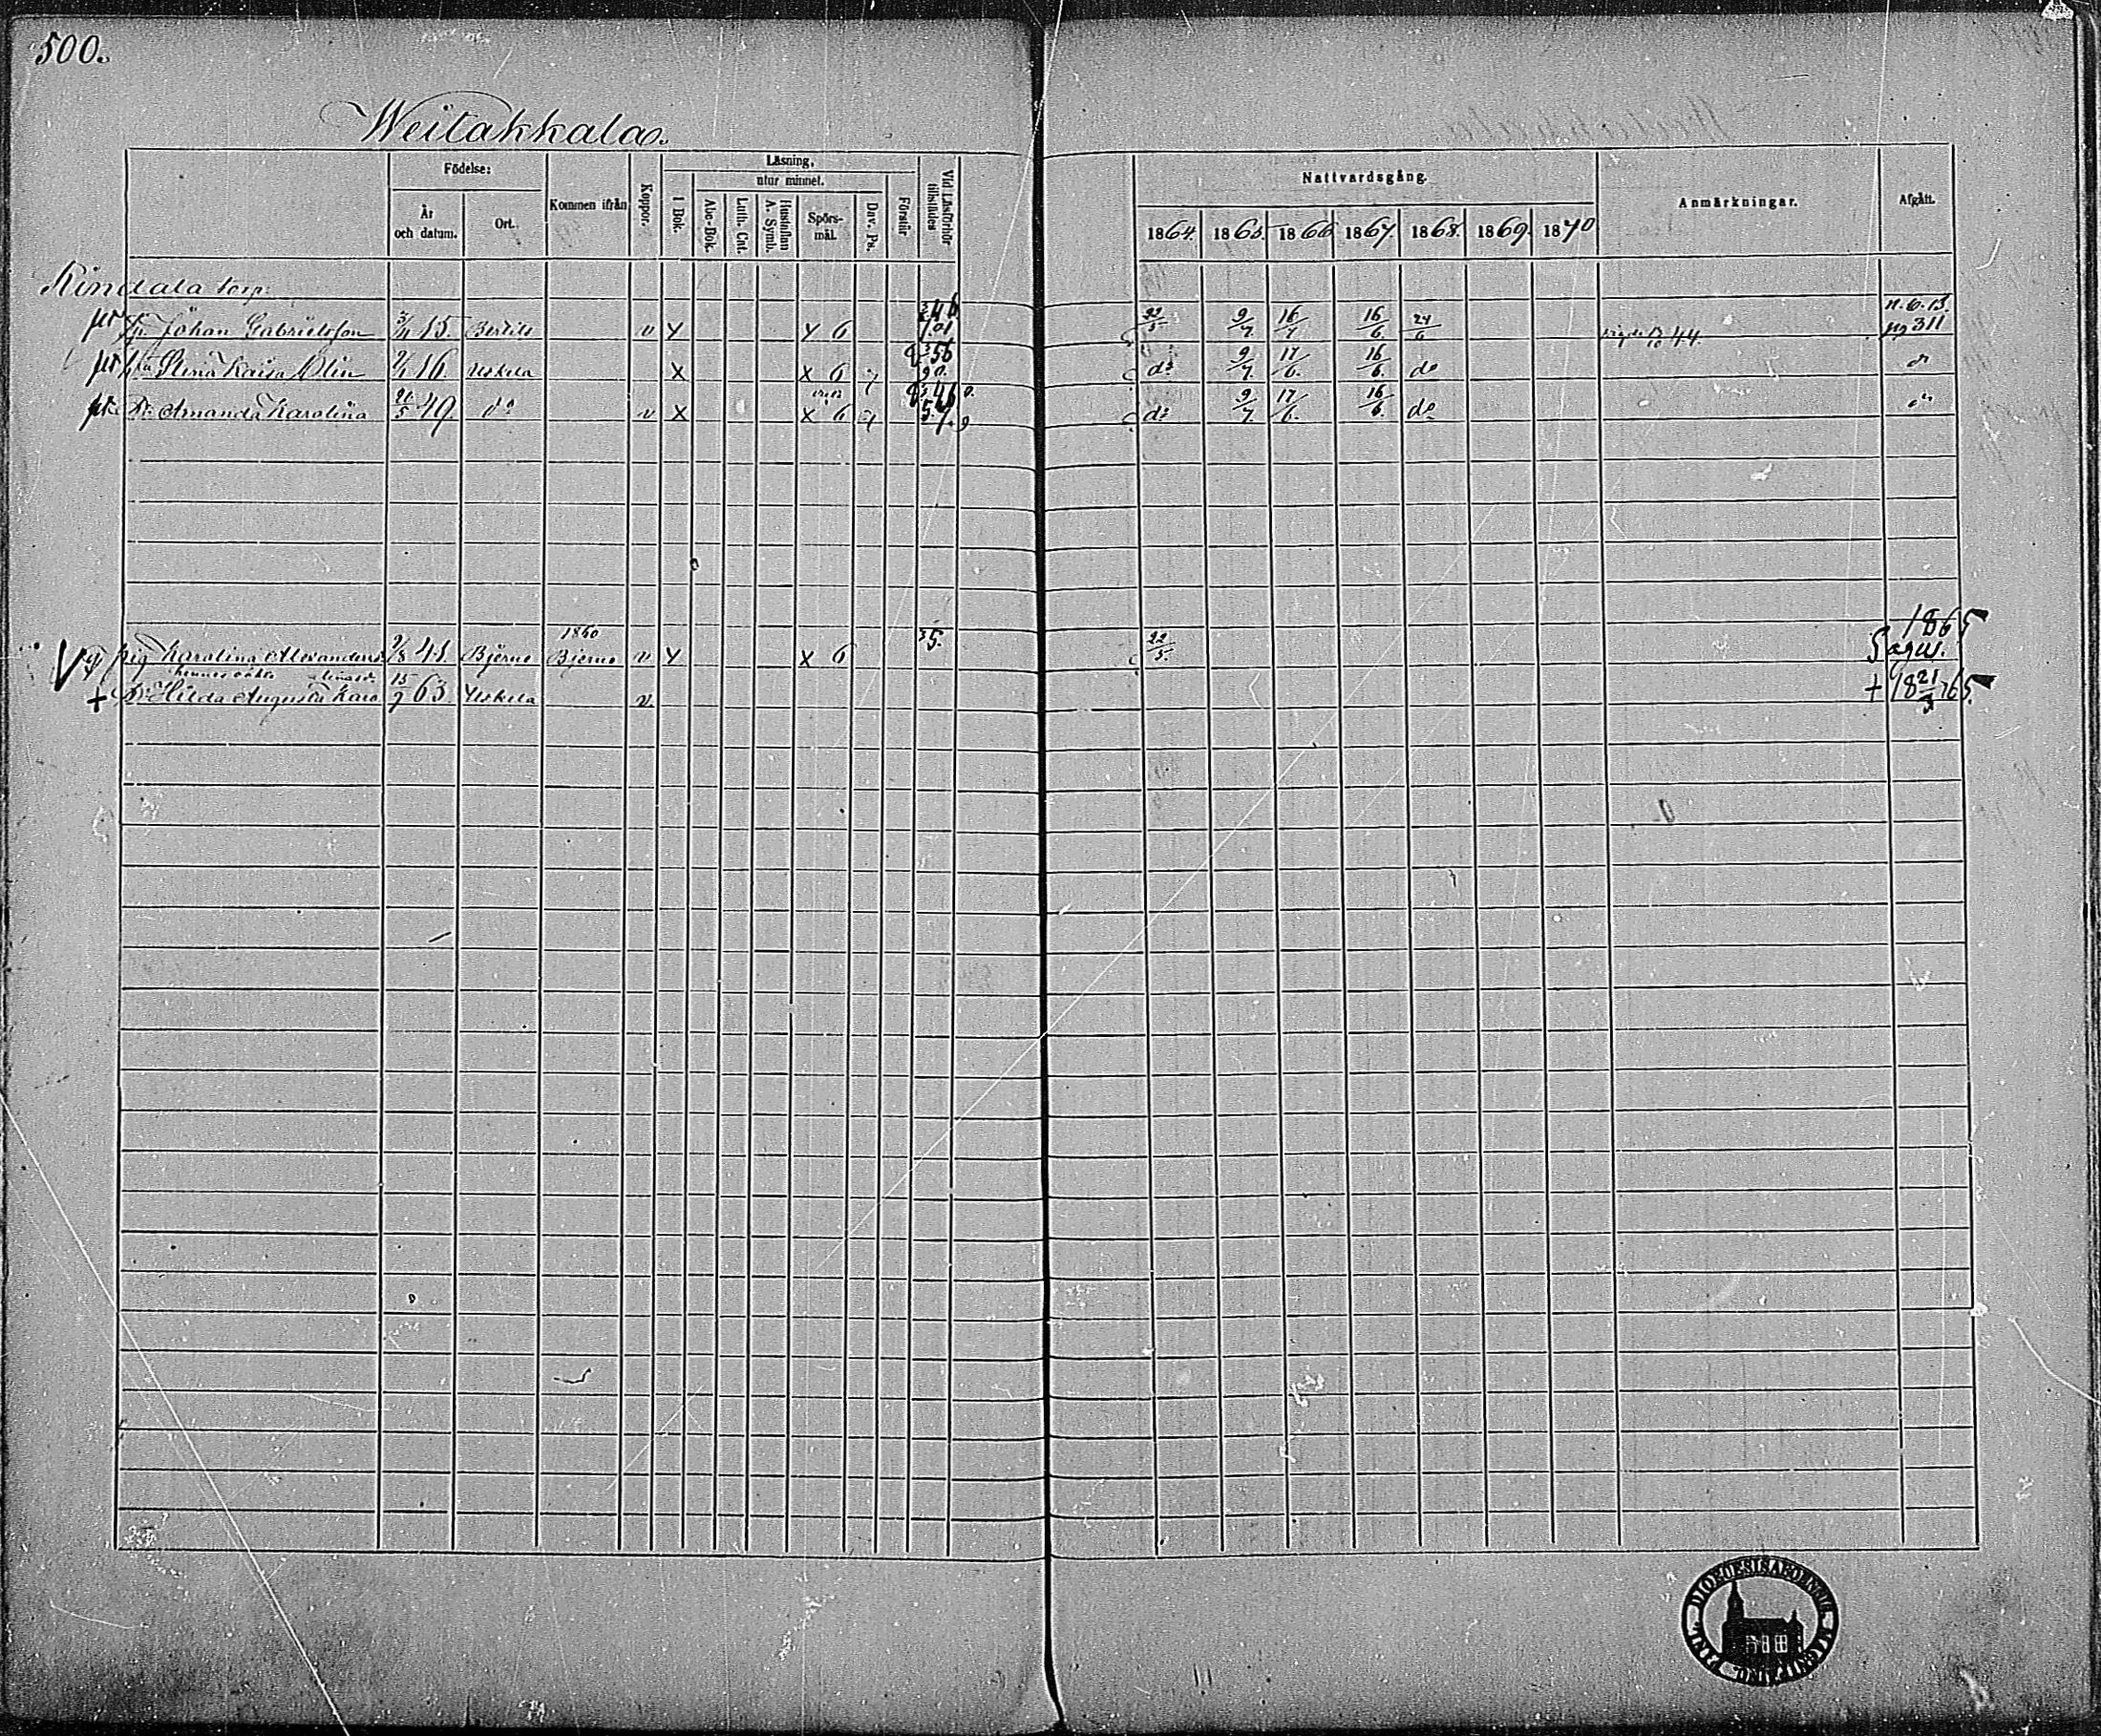 500.
Weitakkala.
Födelse:
År och datum.
Ort.
Kommen ifrån
Koppor.
Läsning,
I Bok.
utur minnet.
Abc-Bok.
Luth. Cat.
Hustaflan A. Symb.
Spörsmål.
Dav. Ps.
Förstår
Vid Läsförhör tillstädes
Nattvardsgång.
1864. 1865. 1866 1867. 1868. 1869. 1870
Anmärkningar.
Afgått.
Kindala torp.
Johan Gabrielsson 3/11 15. Bertils v x x 6 22/5 9/7 16/7 16/6 24/6 44. pg 311
Stina Kaisa Olin 2/1 16. Uskela x x 6 do 9/7 17/6 16/6 do
Dr Amanda Karolina 21/5 49 do v x x 6 do 9/7 17/6 16/6 do
1860
pig Karolina Alexandersd. 2/8 41. Bjerno Bjerno v x x 6 35. 22/5 1865 Sagu.
hennes oäkta
+ Dr Hilda Augusta 15/7 63. Uskela v. + 18 21/3 65.
DIOECESIS ABOENSIS